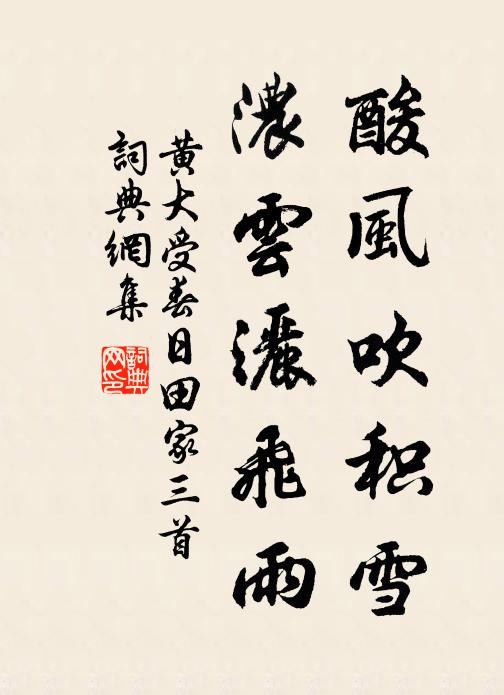 酸風吹积雪
濃雲灑飛雨
黃大受春日田家三首
詞典網集
詞典
网印